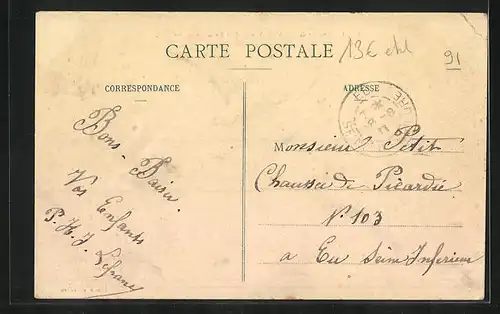 CARTE POSTALE
13€
91
CORRESPONDANCE
ADRESSE
Bons Baisers
Vos Enfants
P. H. J. Lefranc
Monsieur Petit
Chaussée de Picardie
N° 103
a Eu Seine Inferieure